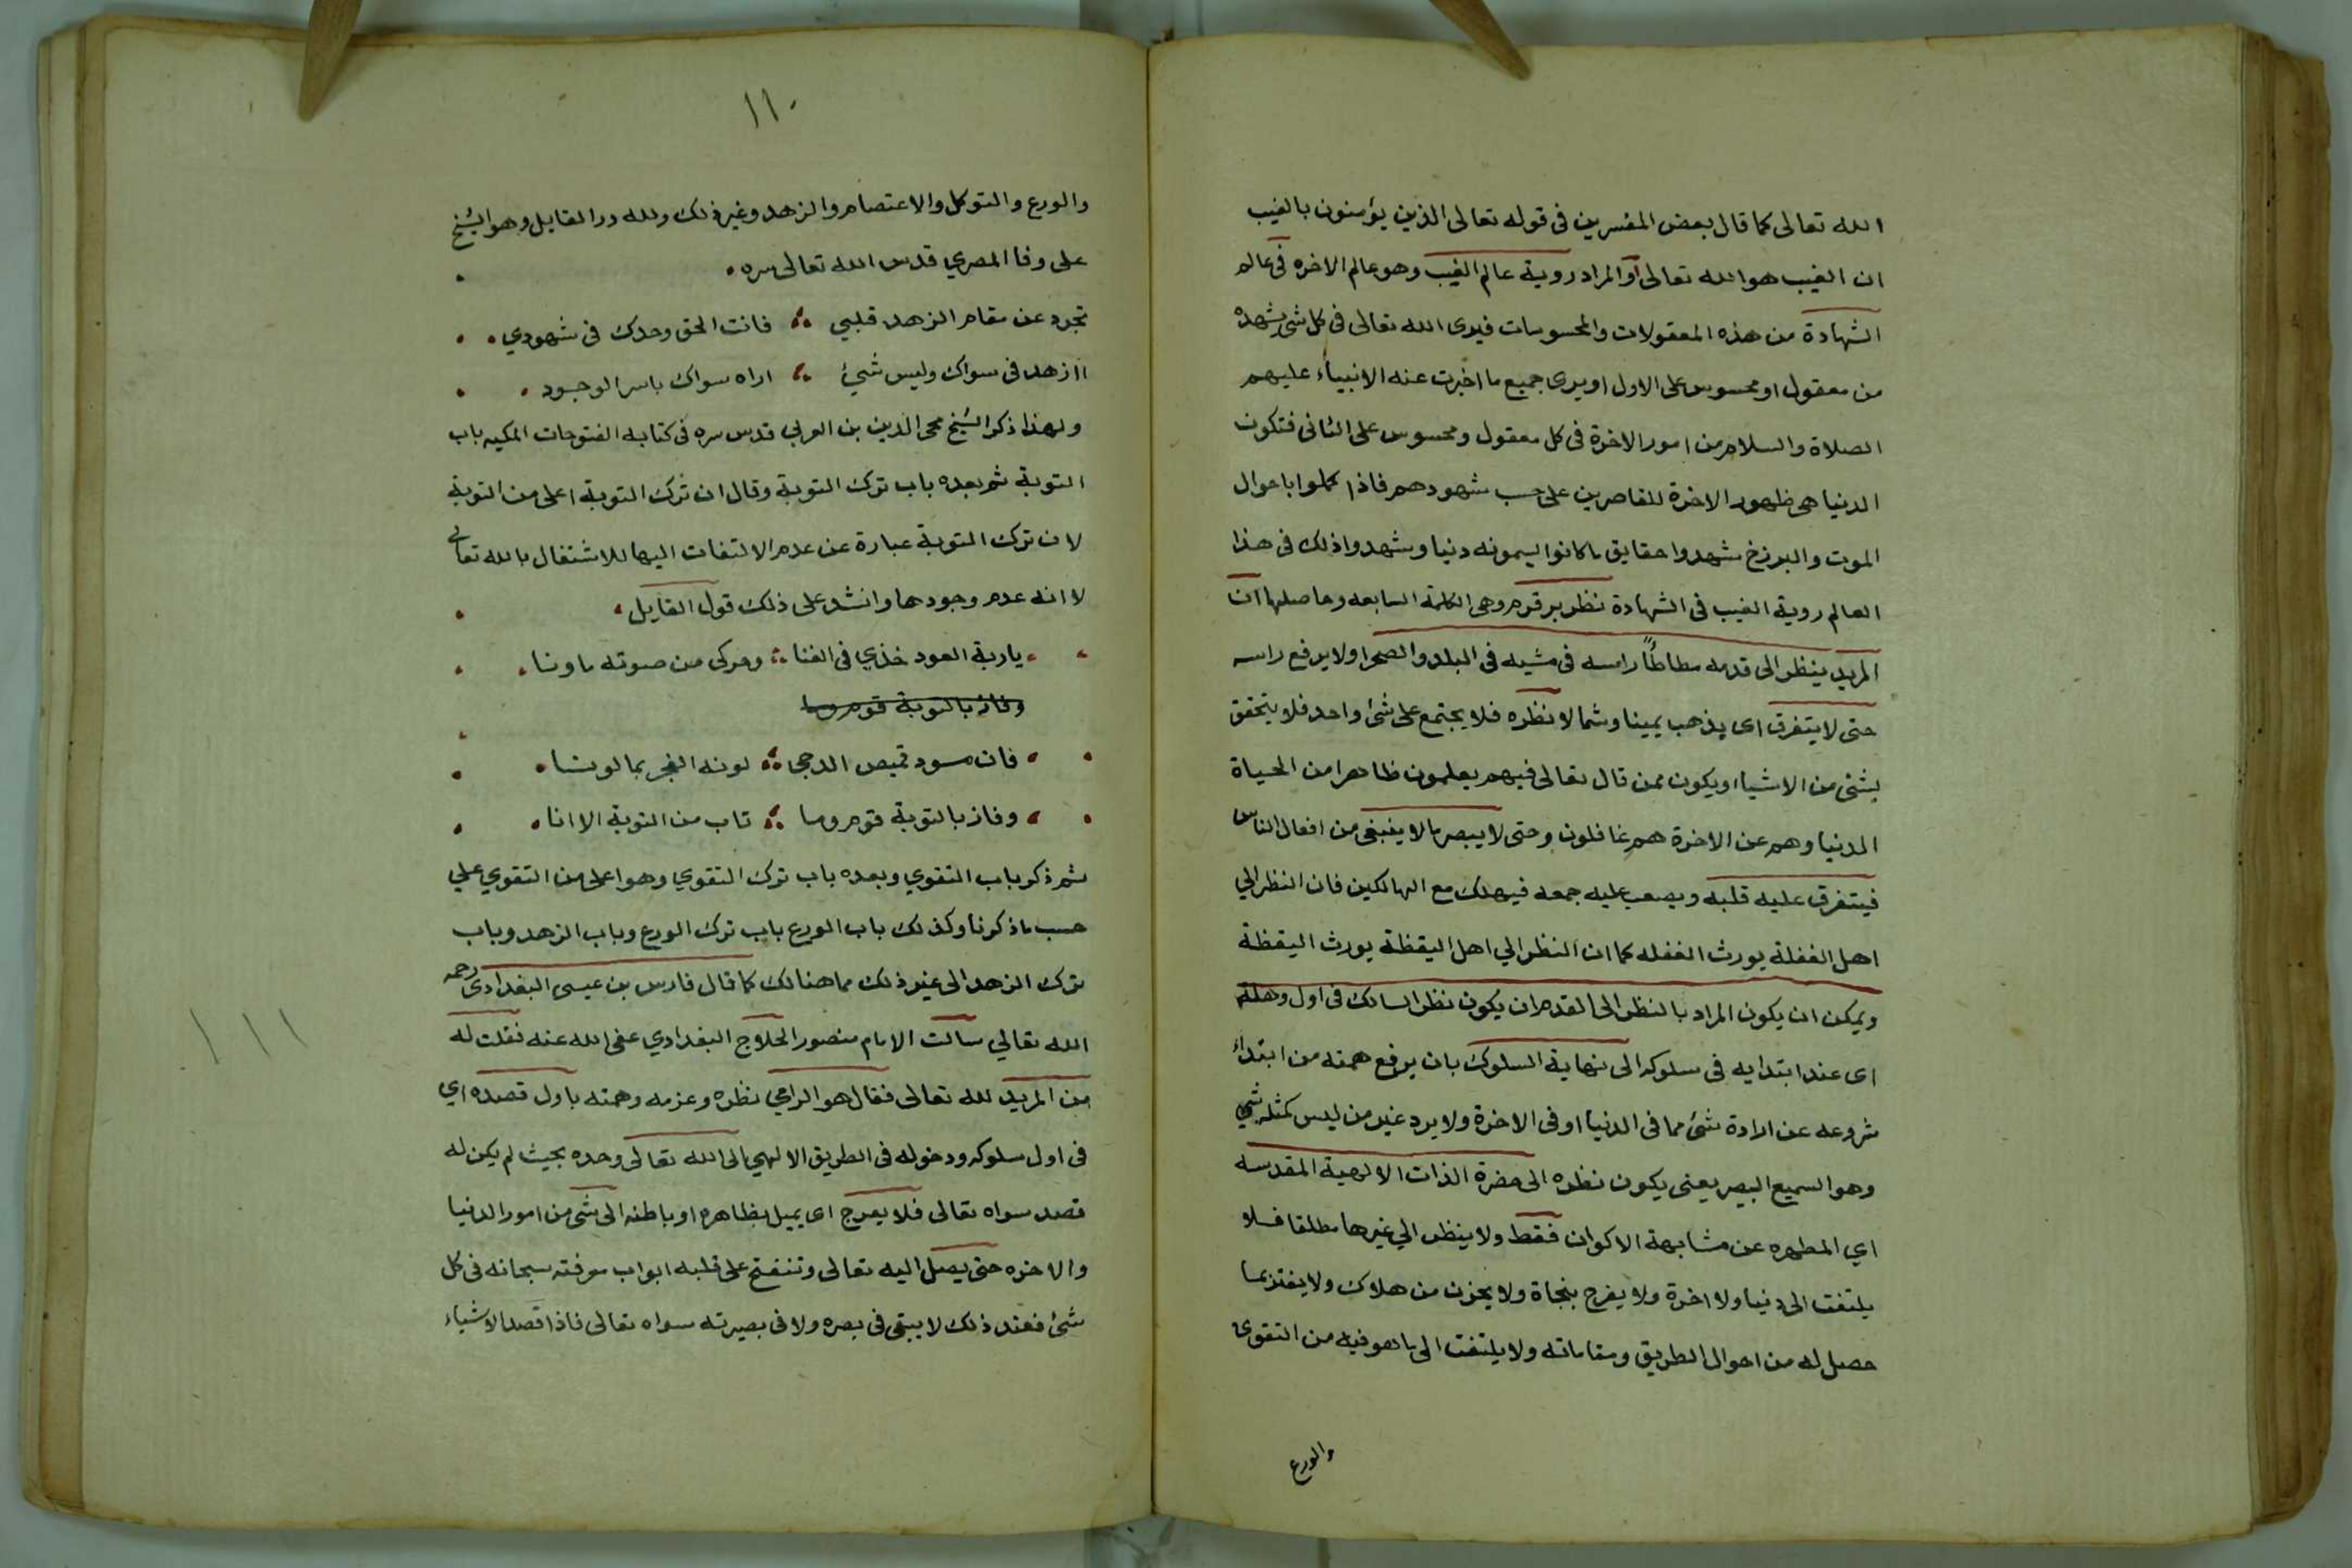 الله تعالى كما قال بعض المفسرين في قوله تعالى الذين يؤمنون بالغيب
ان الغيب هو الله تعالى او المراد روية عالم الغيب وهو عالم الاخره في عالم
الشهادة من هذه المعقولات والمحسوسات فيرى الله تعالى في كل شئ يشهده
من معقول او محسوس على الاول او يرى جميع ما اخبرت عنه الانبياء عليهم
الصلاة والسلام من امور الاخرة في كل معقول ومحسوس على الثاني فتكون
الدنيا هي ظهور الاخرة للقاصرين على حسب شهودهم فاذا كملوا باحوال
الموت والبرزخ شهدوا حقايق ما كانوا يسمونه دنيا وشهدوا ذلك في هذا
العالم روية الغيب في الشهادة نظر بر قدم وهي الكلمة السابعه وحاصلها ان
المريد ينظر الى قدمه مطاطأً راسه في مشيه في البلد والصحرا ولا يرفع راسه
حتى لا يتفرق اى يذهب يمينا وشمالا نظره فلا يجتمع على شئ واحد فلا يتحقق
بشئ من الاشيا او يكون ممن قال تعالى فيهم يعلمون ظاهرا من الحياة
الدنيا وهم عن الاخرة هم غافلون وحتى لا يبصر ما لا ينبغي من افعال الناس
فيتفرق عليه قلبه ويصعب عليه جمعه فيهلك مع الهالكين فان النظر الي
اهل الغفلة يورث الغفله كما ان النظر الي اهل اليقظة يورث اليقظة
ويمكن ان يكون المراد بالنظر الى القدم ان يكون نظر السالك في اول وهلة
اى عند ابتدايه في سلوكه الى نهاية السلوك بان يرفع همته من ابتداء
شروعه عن ارادة شئ مما في الدنيا او في الاخرة ولا يرد غير من ليس كمثله شي
وهو السميع البصير يعنى يكون نظره الى حضرة الذات الالهية المقدسه
اي المطهره عن مشابهة الاكوان فقط ولا ينظر الي غيرها مطلقا فلا
يلتفت الى دنيا ولا اخرة ولا يفرح بنجاة ولا يحزن من هلاك ولا يغتر بما
حصل له من احوال الطريق ومقاماته ولا يلتفت الى ما هو فيه من التقوى
والورع
١١٠
والورع والتوكل والاعتصام والزهد وغير ذلك ولله در القايل وهو الشيخ
على وفا المصري قدس الله تعالى سره
تجرد عن مقام الزهد قلبي فانت الحق وحدك في شهودي
اازهد في سواك وليس شيئ اراه سواك ياسر الوجود
ولهذا ذكر الشيخ محى الدين بن العربي قدس سره في كتابه الفتوحات المكيه باب
التوبة ثم بعده باب ترك التوبة وقال ان ترك التوبة اعلى من التوبة
لان ترك التوبة عبارة عن عدم الالتفات اليها للاشتغال بالله تعالى
لا انه عدم وجودها وانشد على ذلك قول القايل
ياربة العود خذي في الغنا وحركي من صوته ما ونا
وفاز بالتوبة قوم وما
فان مسود قميص الدجى لونه الفجر بما لونا
وفاز بالتوبة قوم وما تاب من التوبة الا انا
ثم ذكر باب التقوي وبعده باب ترك التقوي وهو اعلى من التقوي علي
حسب ما ذكرنا وكذلك باب الورع باب ترك الورع وباب الزهد وباب
ترك الزهد الى غير ذلك مما هنالك كما قال فارس بن عيسى البغدادى رحمه
الله تعالي سالت الامام منصور الحلاج البغدادي عفى الله عنه فقلت له
من المريد لله تعالى فقال هو الرامي نظره وعزمه وهمته باول قصده اي
في اول سلوكه ودخوله في الطريق الالهي الى الله تعالى وحده بحيث لم يكن له
قصد سواه تعالى فلا يعرج اى يميل بظاهره او باطنه الى شئ من امور الدنيا
والاخره حتى يصل اليه تعالى وتنفتح على قلبه ابواب معرفته سبحانه في كل
شئ فعند ذلك لا يبقى في بصره ولا في بصيرته سواه تعالى فاذا قصد الاشياء
١١١